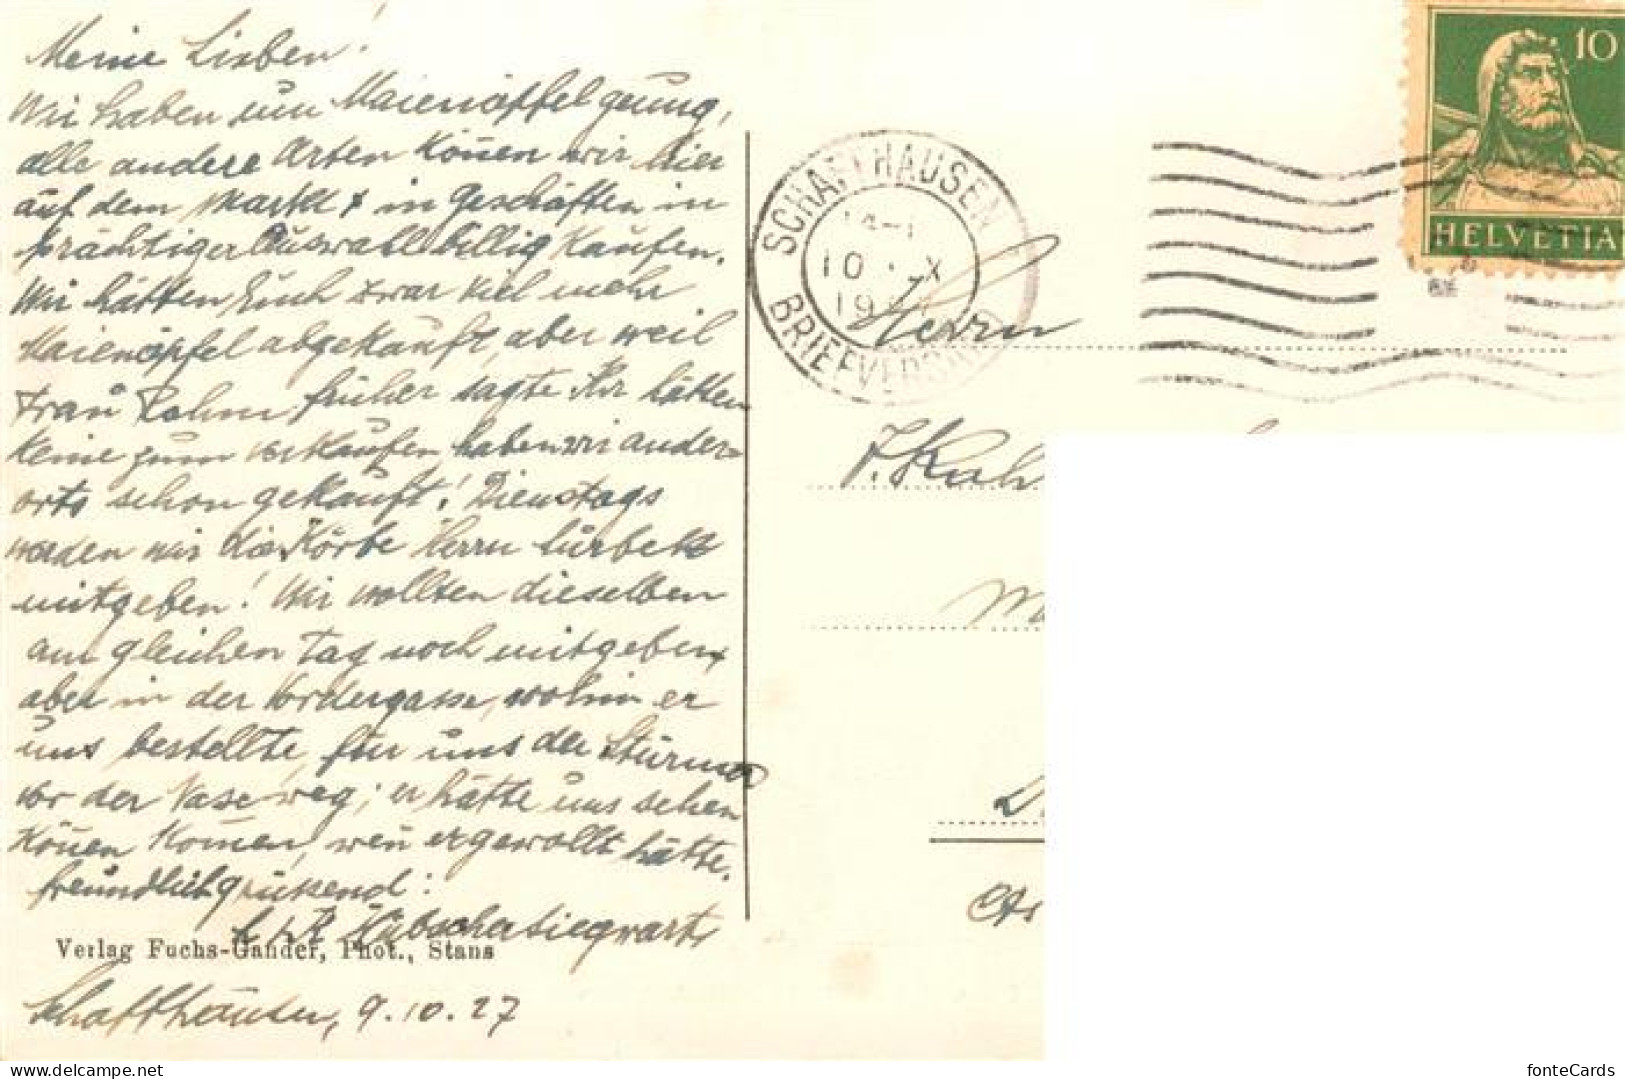 Meine Lieben!
Wir haben nun Maienäpfel genug,
alle andere Arten können wir hier
auf dem Markt & in Geschäften in
prächtiger Auswahl billig kaufen.
Wir hätten Euch zwar viel mehr
Maienäpfel abgekauft, aber weil
Frau Rohm früher sagte Ihr hätten
keine zum verkaufen haben wir ander-
orts schon gekauft! Dienstags
werden wir die Körbe Herrn Lürbek
mitgeben! Wir wollten dieselben
am gleichen Tag noch mitgeben,
aber in der Vordergasse, wohin er
uns bestellte, für uns der
vor der Nase weg; er hätte uns sehen
können kommen, wen er gewollt hätte.
freundlich grüssend:
Hubscher Siegwart,
Verlag Fuchs-Gander, Phot., Stans
Schaffhausen, 9.10.27
SCHAFFHAUSEN
10 . X
19
BRIEFVERSAND
10
HELVETIA
Herrn
J. Kuh
D
fonteCards